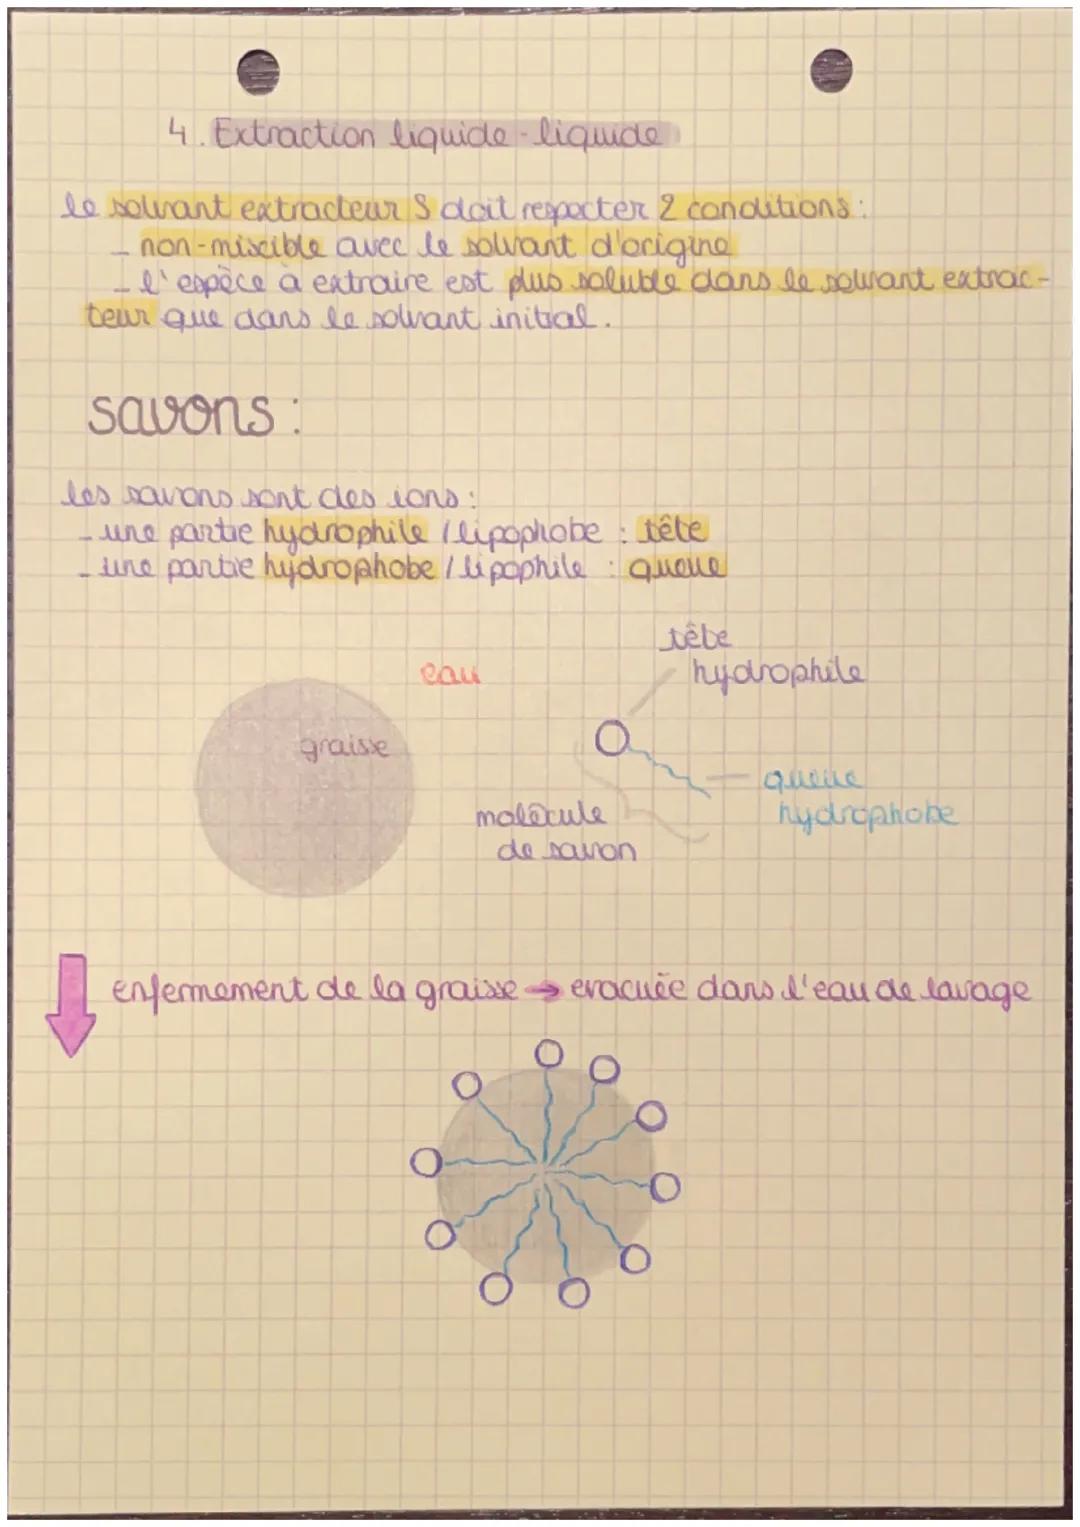 4. Extraction liquide-liquide
le solvant extracteur S doit respecter 2 conditions:
- non-miscible avec le solvant d'origine
- l'espèce à extraire est plus soluble dans le solvant extrac-
teur que dans le solvant initial.
savons :
les savons sont des ions :
- une partie hydrophile / lipophobe : tête
- une partie hydrophobe / lipophile : queue
tête
hydrophile
eau
graisse
queue
hydrophobe
molécule
de savon
enfermement de la graisse → evacuée dans l'eau de lavage